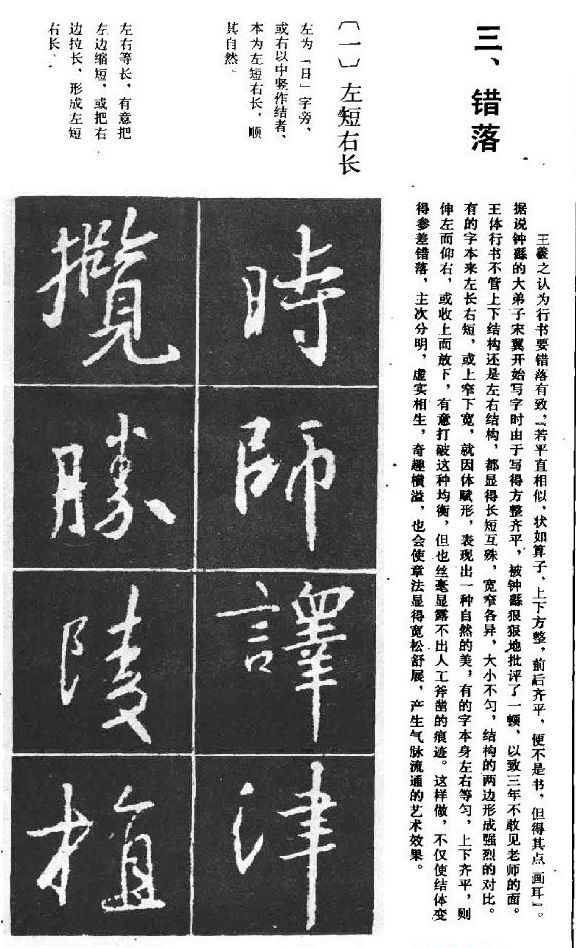 三、错落
王羲之认为行书要错落有致，“若平直相似，状如算子，上下方整，前后齐平，便不是书，但得其点画耳”。
据说钟繇的大弟子宋翼开始写字时由于写得方整齐平，被钟繇狠狠地批评了一顿，以致三年不敢见老师的面。
王体行书不管上下结构还是左右结构，都显得长短互殊，宽窄各异，大小不匀，结构的两边形成强烈的对比。
有的字本来左长右短，或上窄下宽，就因体赋形，表现出一种自然的美，有的字本身左右等匀，上下齐平，则
伸左而仰右，或收上而放下，有意打破这种均衡，但也丝毫显露不出人工斧凿的痕迹。这样做，不仅使结体变
得参差错落，主次分明，虚实相生，奇趣横溢，也会使章法显得宽松舒展，产生气脉流通的艺术效果。
〔一〕左短右长
左为“日”字旁、
或右以中竖作结者、
本为左短右长，顺
其自然。
左右等长，有意把
左边缩短，或把右
边拉长，形成左短
右长。
時
師
譯
津
攬
勝
陵
植